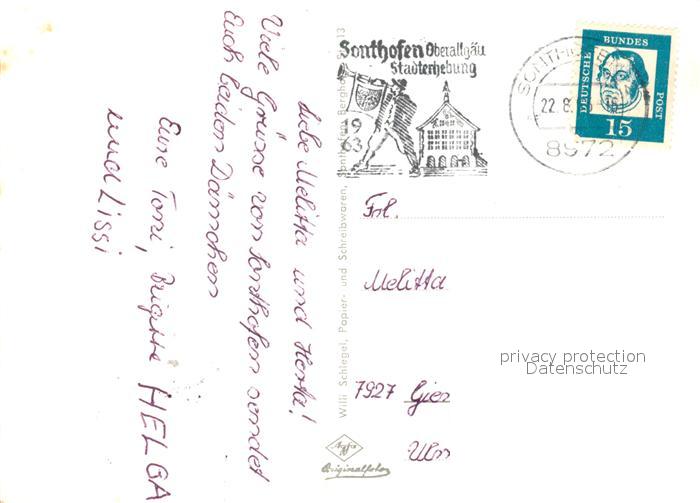 Liebe Melitta und Herta!
Viele Grüsse von Sonthofen sendet
Euch beiden Dämchen
Eure Toni, Brigitte HELGA
und Lissi
Willi Schlegel, Papier- und Schreibwaren, Sonthofen, 13
Agfa
Originalfoto
Sonthofen Oberallgäu
Stadterhebung
1963
22.8.
8972
DEUTSCHE BUNDESPOST
15
Frl.
Melitta
7927 Gien
Ulm
privacy protection
Datenschutz